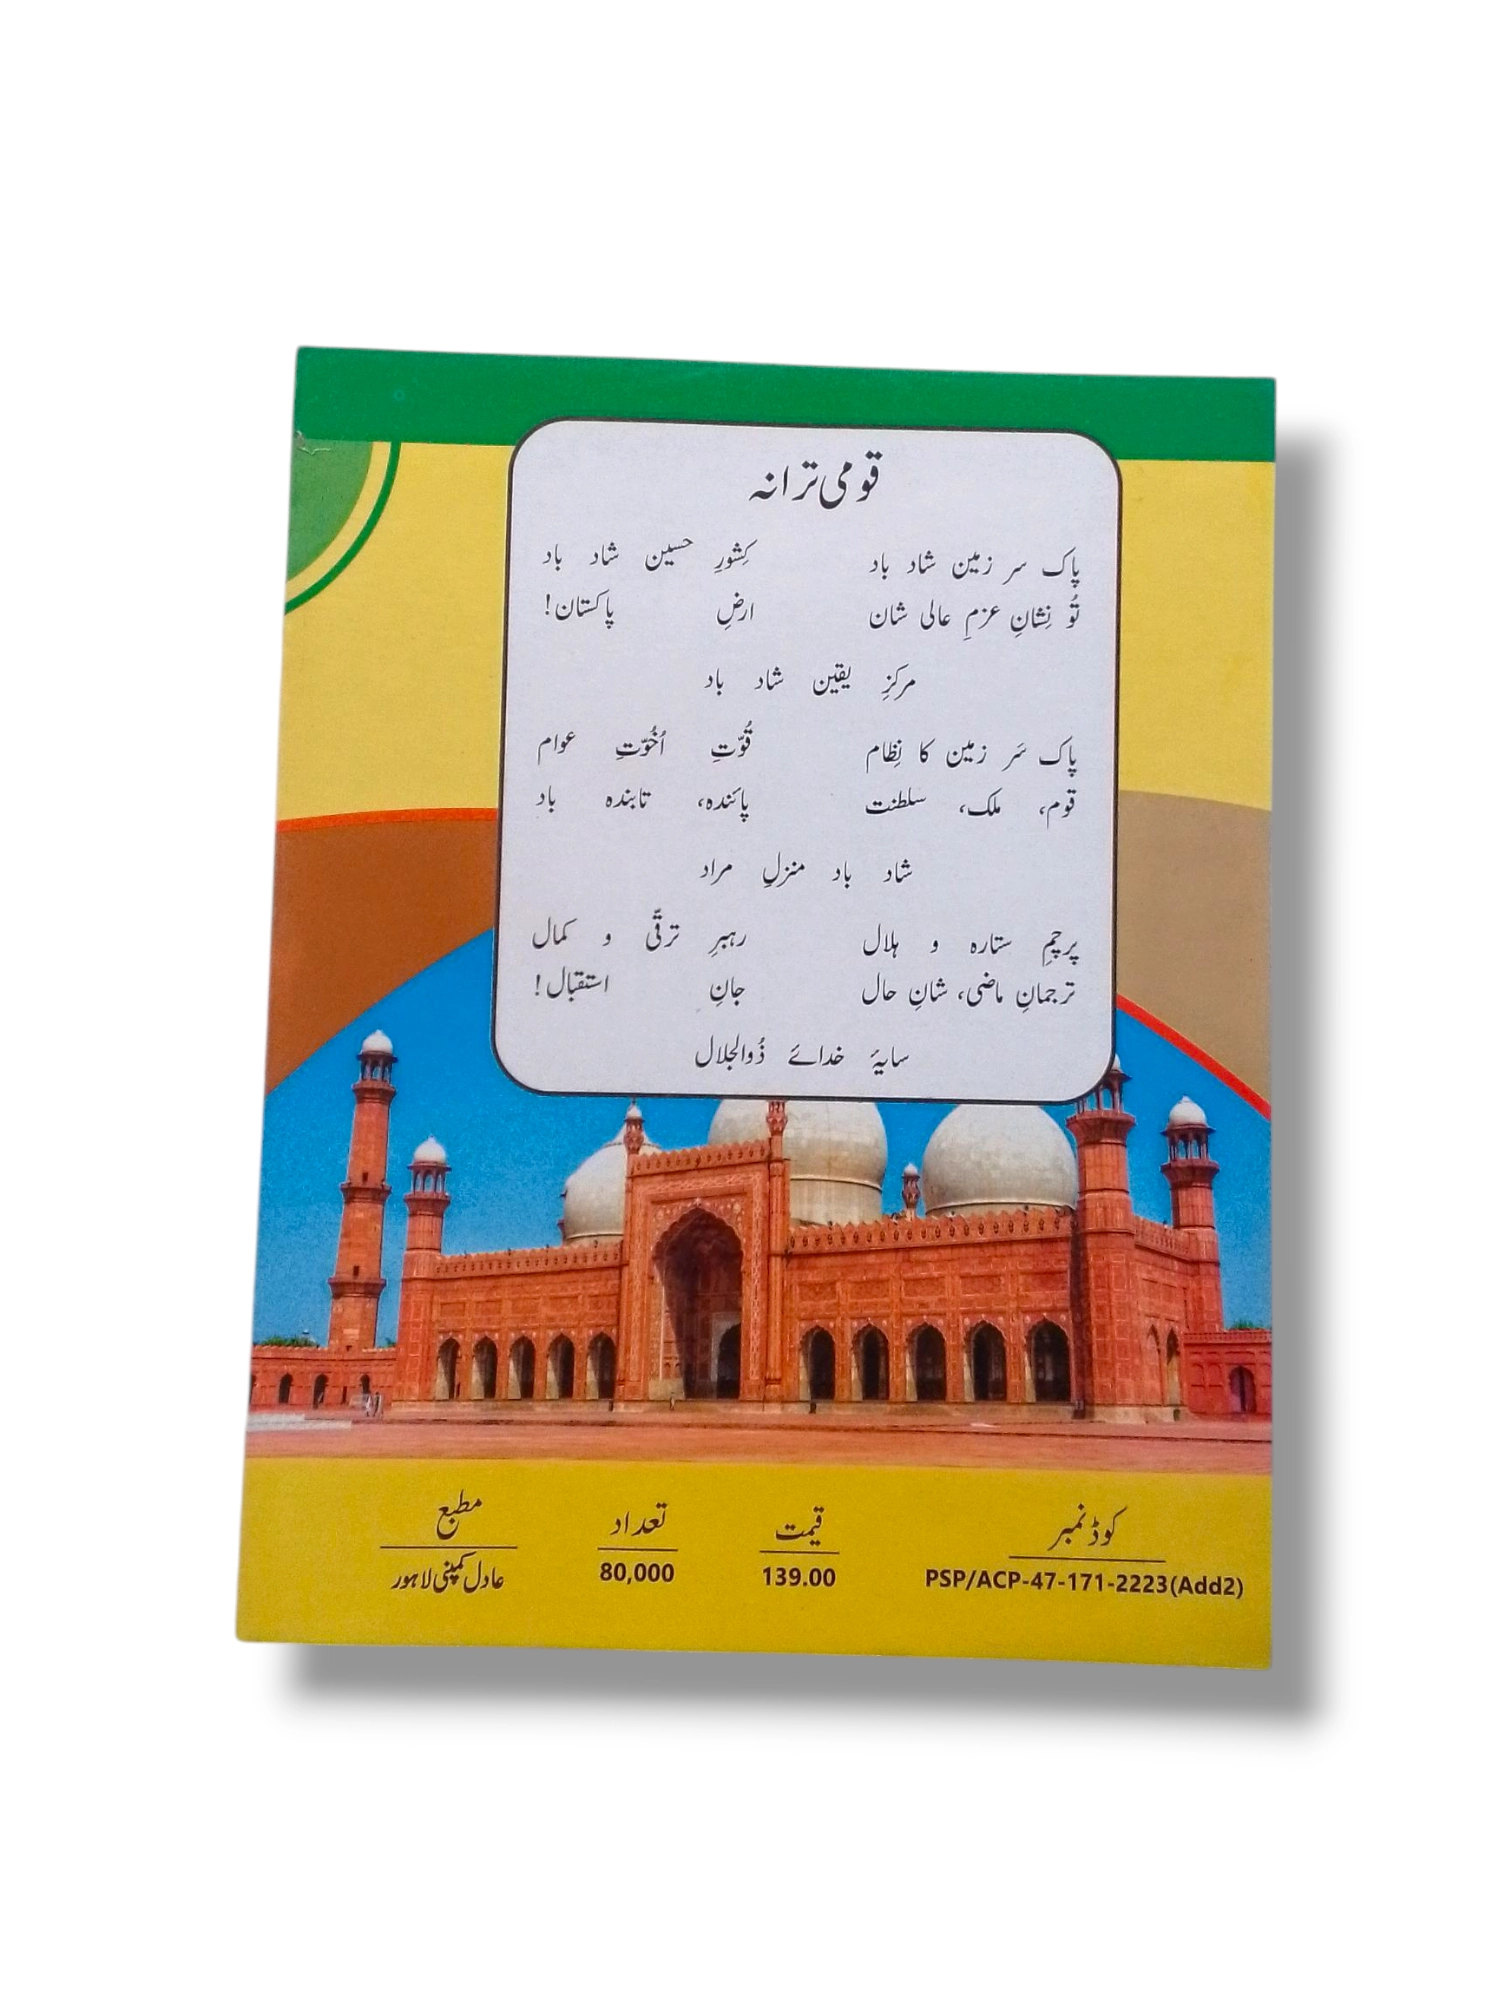 قومی ترانہ
پاک سر زمین شاد باد کِشورِ حسین شاد باد
تُو نِشانِ عزمِ عالی شان ارضِ پاکستان!
مرکزِ یقین شاد باد
پاک سَر زمین کا نِظام قُوّتِ اُخُوّتِ عوام
قوم، ملک، سلطنت پائندہ، تابندہ باد
شاد باد منزلِ مراد
پرچمِ ستارہ و ہلال رہبرِ ترقّی و کمال
ترجمانِ ماضی، شانِ حال جانِ استقبال!
سایۂ خدائے ذُوالجلال
کوڈ نمبر قیمت تعداد مطبع
PSP/ACP-47-171-2223(Add2) 139.00 80,000 عادل کمپنی لاہور